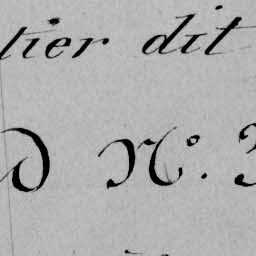 tier dit
d N°. 3